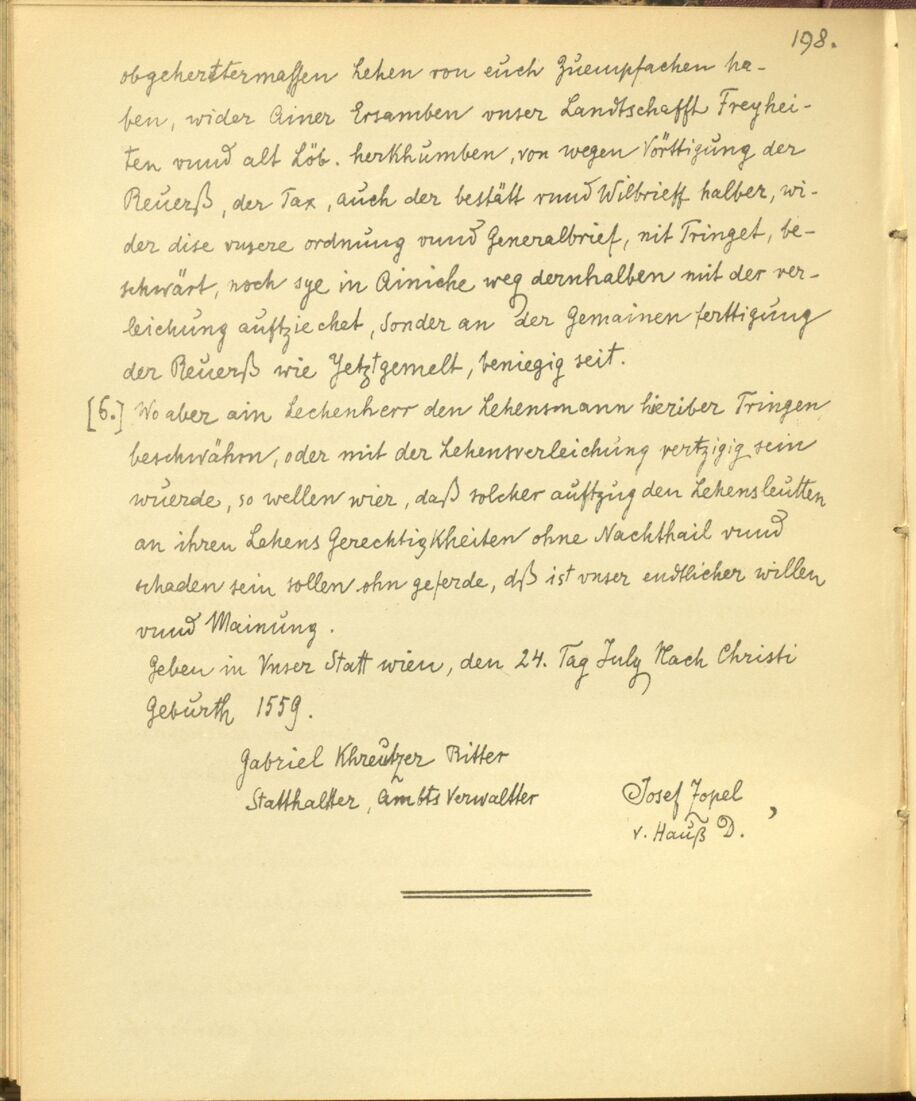 198.
obgehertermassen Lehen von euch Zuempfachen ha-
ben, wider Ainer Ersamben vnser Landtschafft Freyhei-
ten vnnd alt Löb. herkhumben, von wegen Vörttigung der
Reuerß, der Tax, auch der bestätt vnnd Wilbrieff halber, wi-
der dise vnsere ordnung vnnd Generalbrief, nit Tringet, be-
schwärt, noch sye in Ainiche weg dernhalben mit der ver-
leichung auftziechet, Sonder an der Gemainen ferttigung
der Reuerß wie Yetztgemelt, beniegig seit.
[6.] Wo aber ain Lechenherr den Lehensmann hieriber Tringen
beschwährn, oder mit der Lehensverleichung vertzigig sein
wuerde, so wellen wier, daß solcher auftzug den Lehensleutten
an ihren Lehens Gerechtigkheiten ohne Nachthail vnnd
schaden sein sollen ohn geferde, dß ist vnser endtlicher willen
vnnd Mainung.
Geben in Vnser Statt wien, den 24. Tag July Nach Christi
Geburth 1559.
Gabriel Khreutzer Ritter
Statthaltter, Ambts Verwaltter
Josef Zopel
v. Hauß D.